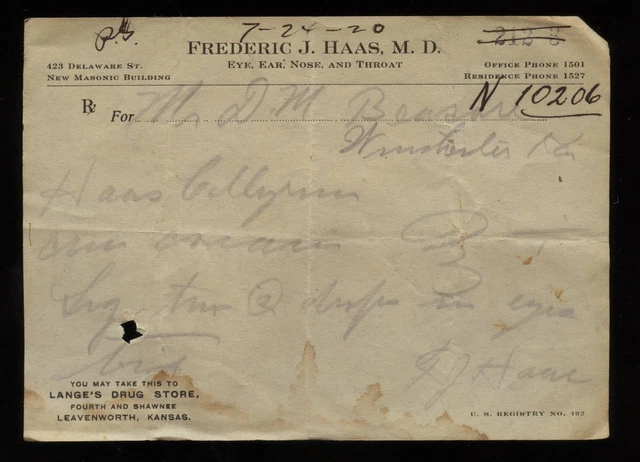 P.G. 7-24-20
212 8
FREDERIC J. HAAS, M. D.
EYE, EAR, NOSE, AND THROAT
423 DELAWARE ST.
NEW MASONIC BUILDING
OFFICE PHONE 1501
RESIDENCE PHONE 1527
N 10206
℞ For Mr D. M
Winchester
Haas Collyrium
Sig two 2 drops in eyes
bid
F J Haas
YOU MAY TAKE THIS TO
LANGE'S DRUG STORE,
FOURTH AND SHAWNEE
LEAVENWORTH, KANSAS.
U. S. REGISTRY NO. 492